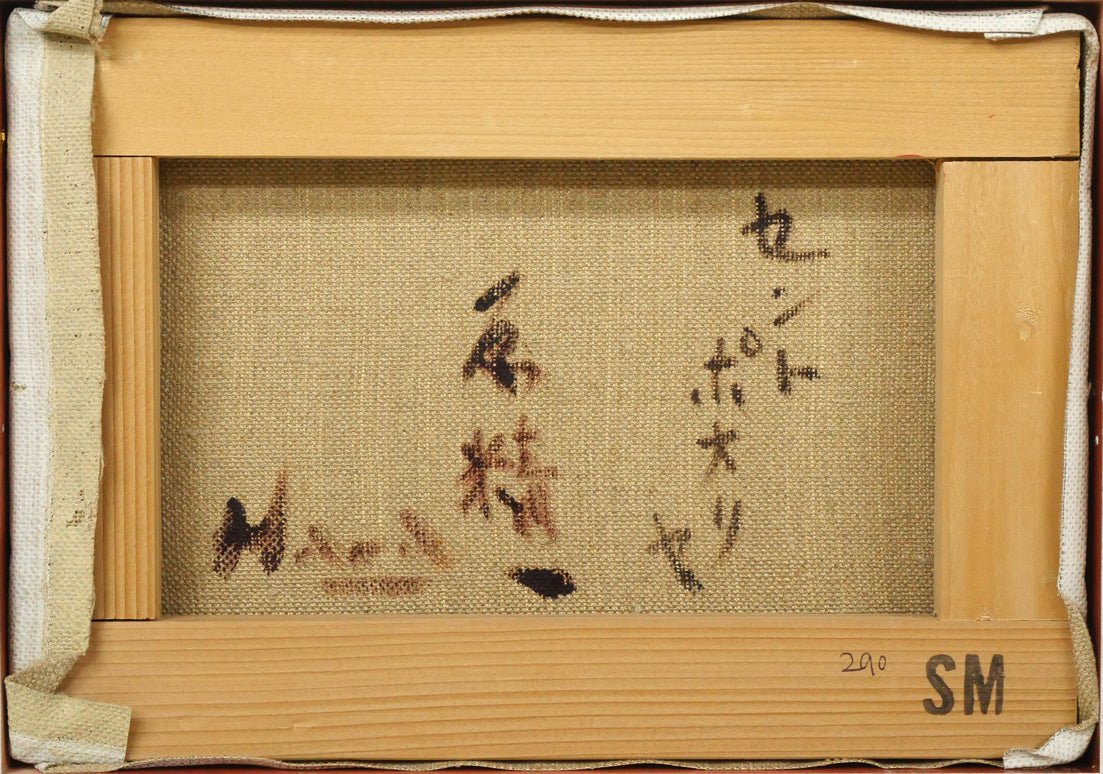 セント
ポオリ
ヤ
原精一
290
SM